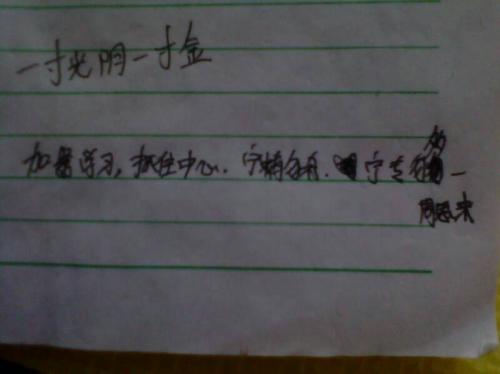 一寸光阴一寸金
加紧学习,抓住中心.宁精勿杂.宁专勿多—
周恩来